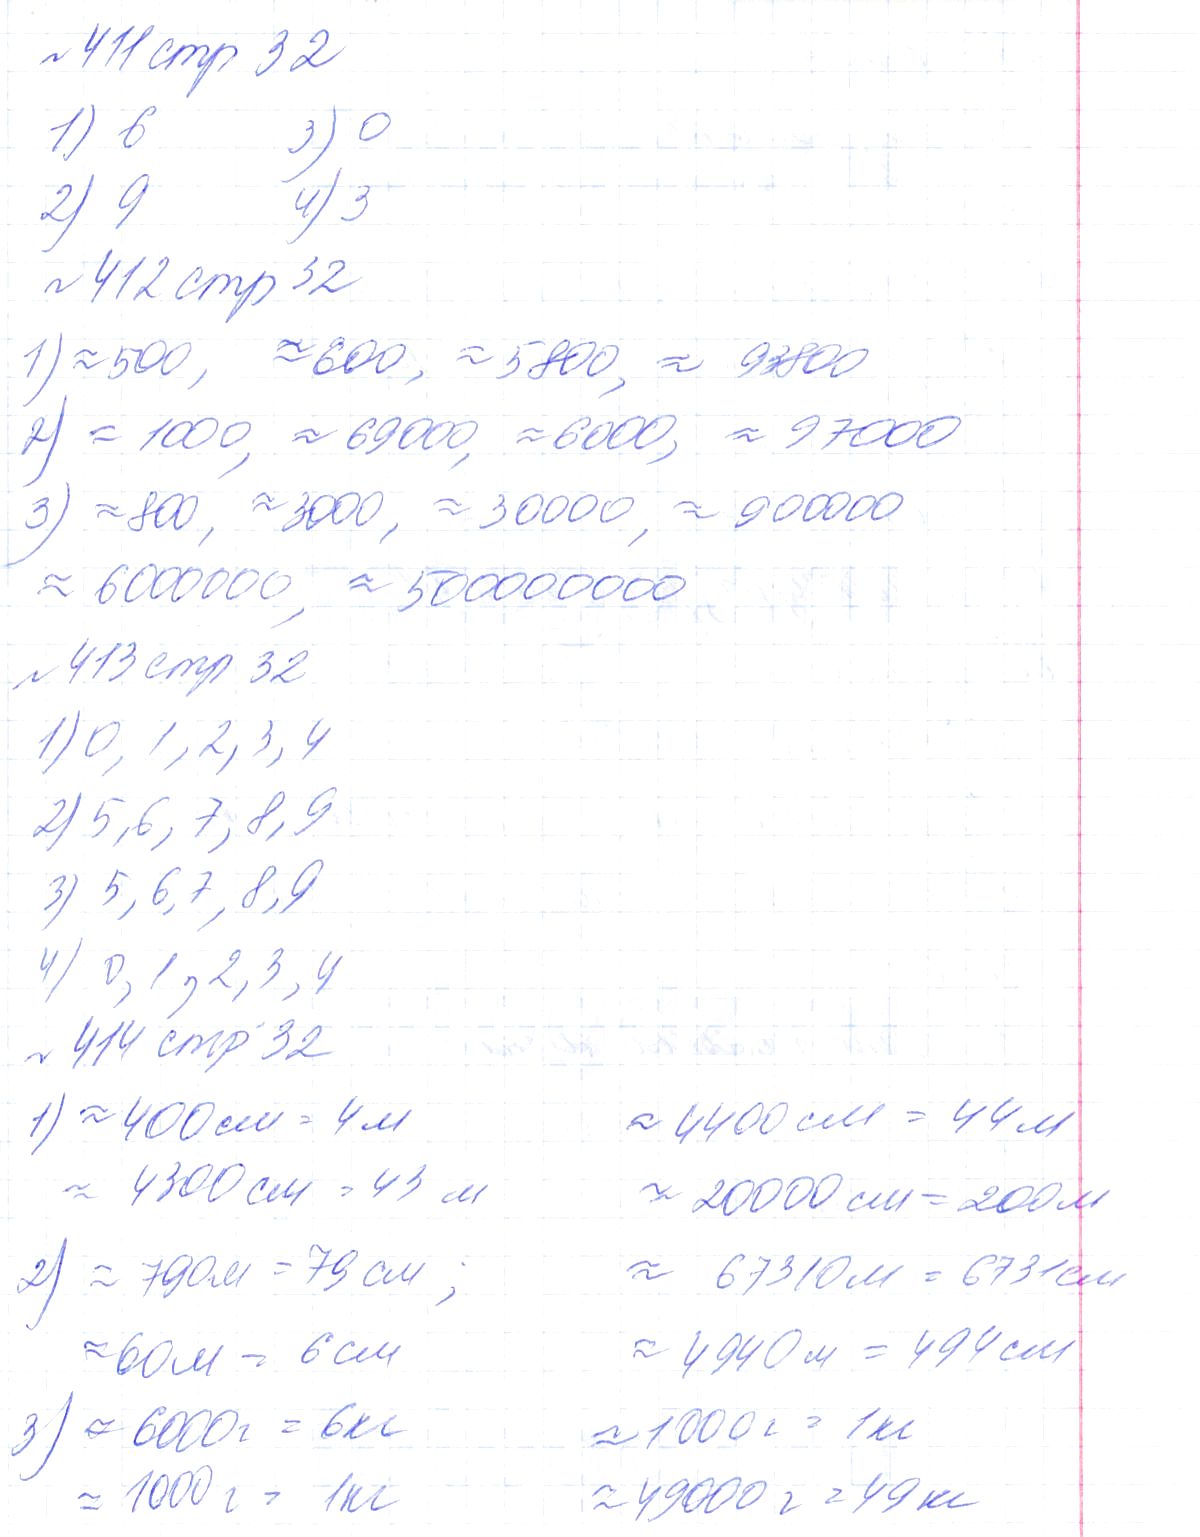 ~411 стр 32
1) 6 3) 0
2) 9 4) 3
~412 стр 32
1) ≈500, ≈600, ≈5800, ≈ 93800
2) = 1000, ≈69000, ≈6000, ≈97000
3) ≈800, ≈3000, ≈30000, ≈900000
≈6000000, ≈500000000
~413 стр 32
1) 0, 1, 2, 3, 4
2) 5, 6, 7, 8, 9
3) 5, 6, 7, 8, 9
4) 0, 1, 2, 3, 4
~414 стр 32
1) ≈400см = 4м ≈4400см = 44м
≈ 4300см = 43 м ≈20000см = 200м
2) ≈790м = 79см; ≈ 67310м = 6731см
≈60м = 6см ≈4940м = 494см
3) ≈6000г = 6кг ≈1000г = 1кг
≈1000г = 1кг ≈49000г = 49кг